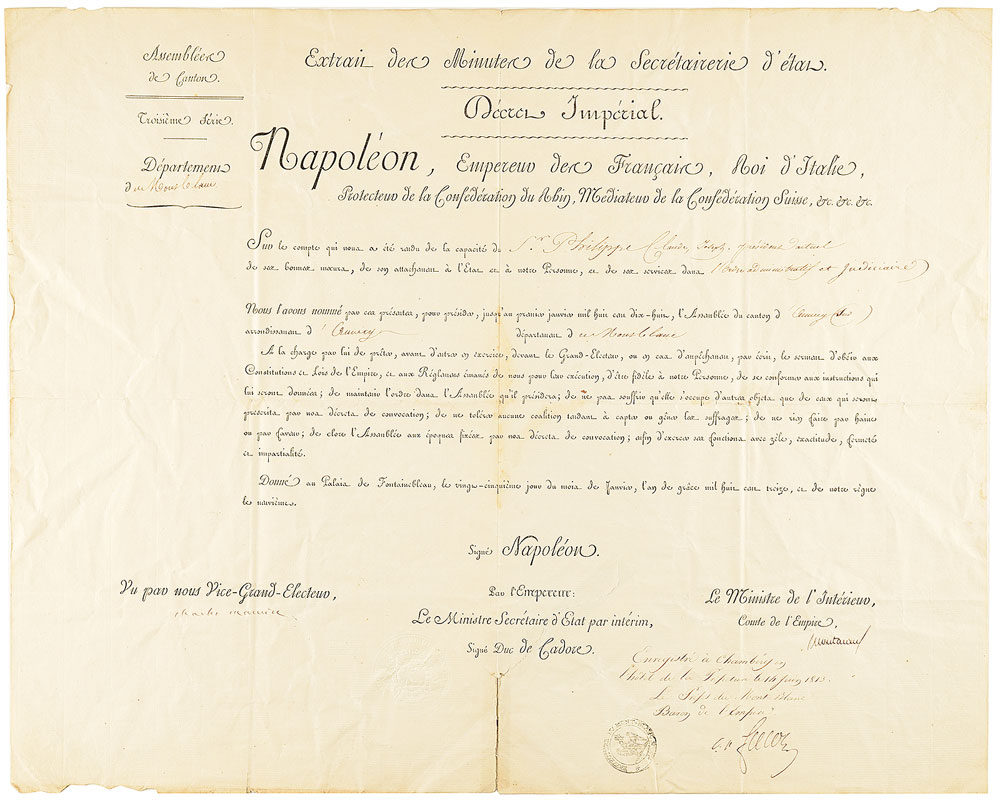 Assemblées
de Canton.
Troisième Série.
Département
du Mont blanc
Extrait des Minutes de la Secrétairerie d'état.
Décret Impérial.
Napoléon, Empereur des Français, Roi d'Italie,
Protecteur de la Confédération du Rhin, Médiateur de la Confédération Suisse, &c. &c. &c.
Sur le compte qui nous a été rendu de la capacité du S.r Philippe Claude Joseph, président actuel
de ses bonnes mœurs, de son attachement à l'État et à notre Personne, et de ses services dans l'Ordre administratif et Judiciaire
Nous l'avons nommé par ces présentes, pour présider, jusqu'au premier janvier mil huit cent dix-huit, l'Assemblée du canton d'Annecy
arrondissement d'Annecy département du Mont blanc
À la charge par lui de prêter, avant d'entrer en exercice, devant le Grand-Électeur, ou en cas d'empêchement, par écrit, le serment d'obéir aux
Constitutions et Lois de l'Empire, et aux Réglemens émanés de nous pour leur exécution, d'être fidèle à notre Personne, de se conformer aux instructions qui
lui seront données; de maintenir l'ordre dans l'Assemblée qu'il présidera; de ne pas souffrir qu'elle s'occupe d'autres objets que de ceux qui seront
prescrits par nos décrets de convocation; de ne tolérer aucune coalition tendant à capter ou gêner les suffrages; de ne rien faire par haine
ou par faveur; de clore l'Assemblée aux époques fixées par nos décrets de convocation; afin d'exercer ses fonctions avec zèle, exactitude, fermeté
et impartialité.
Donné au Palais de Fontainebleau, le vingt-cinquième jour du mois de Janvier, l'an de grâce mil huit cent treize, et de notre règne
le neuvième.
Signé Napoléon.
Vu par nous Vice-Grand-Électeur,
charles maurice
Par l'Empereur:
Le Ministre Secrétaire d'État par intérim,
Signé Duc de Cadore.
Le Ministre de l'Intérieur,
Comte de l'Empire,
Montalivet
Enregistré à Chambéry en
l'hôtel de la Préfecture le 14 Juin 1813.
Le Préfet du Mont Blanc
Baron de l'Empire